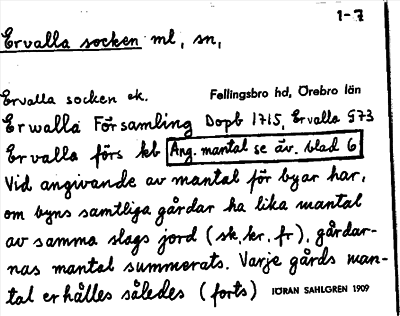 1-7
Ervalla socken ml, sn,
Ervalla socken ek. Fellingsbro hd, Örebro län
Erwalla Församling Dopb 1715, Ervalla 973
Ervalla förs kb Ang. mantal se äv. blad 6
Vid angivande av mantal för byar har,
om byns samtliga gårdar ha lika mantal
av samma slags jord (sk, kr, fr), gårdar-
nas mantal summerats. Varje gårds man-
tal erhålles således (forts) JÖRAN SAHLGREN 1909